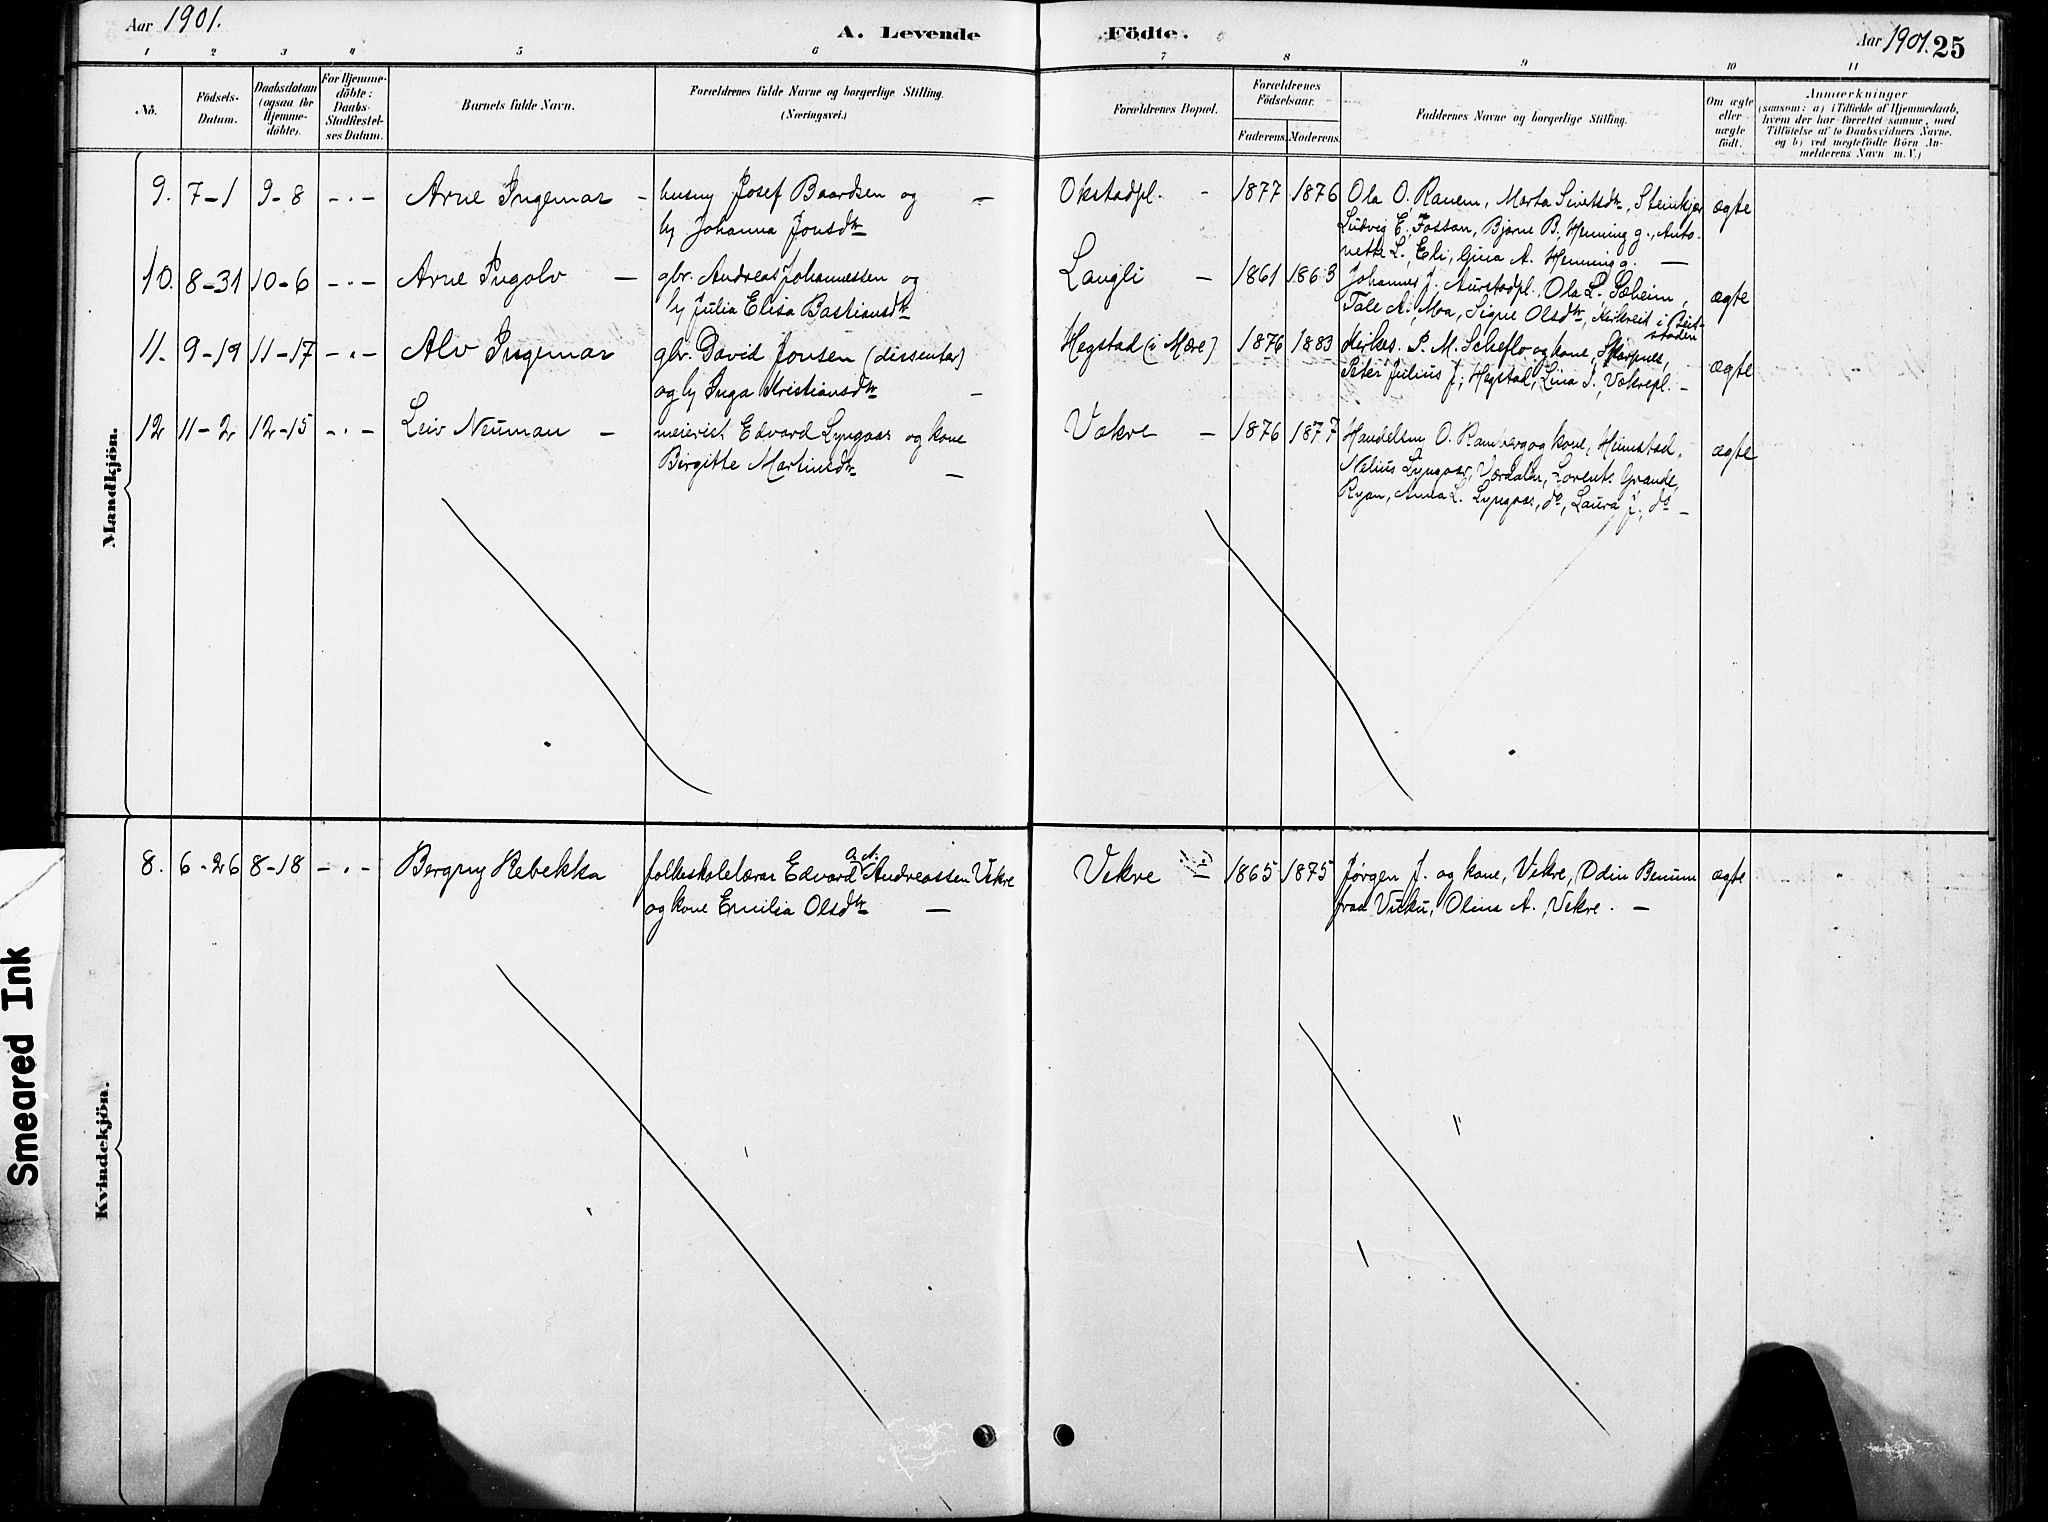 Aar 1901.
A. Levende
Födte.
Aar 1901. 25
1 2 3 4 5 6 7 8 9 10 11
No.
Födsels-
Datum.
Daabsdatum
(ogsaa for
Hjemme-
döbte).
For Hjemme-
döbte:
Daabs-
Stadfæstel-
ses Datum.
Barnets fulde Navn.
Forældrenes fulde Navne og borgerlige Stilling.
(Næringsvei.)
Forældrenes Bopæl.
Forældrenes
Födselsaar.
Faderens.
Moderens.
Faddernes Navne og borgerlige Stilling.
Om ægte
eller
uægte
födt.
Anmærkninger
(saasom: a) i Tilfælde af Hjemmedaab,
hvem der har forrettet samme, med
Tilföielse af to Daabsvidners Navne.
og b) ved uægtefödte Börn An-
melderens Navn m. V.)
Mandkjön.
9. 7-1 9-8 - . - Arne Ingemar -
husmy Josef Baardsen og -
hu Johanna Jonsdtr
Okstadpl. - 1877 1876
Ola O. Ranem, Marta Sivertsdtr, Steinkjær
Ludvig E. Fossan, Bjarne B. Henning g., Anto-
nette L., Eli, Gina A. Henning g. -
ægte
10. 8-31 10-6 - . - Arne Ingolv -
gbr. Andreas Johannessen og
hu Julia Elisa Bastiansdtr
Langli - 1861 1863
Johannes J. Aurstadpl. Ola L. Sæheim,
Tale A. Moa, Signe Olsdtr, Kirkreit i Beit-
staden
ægte
11. 9-19 11-17 - . - Alv Ingemar
gbr. David Jonsen (dissenter)
og hu Inga Kristiansdtr -
Hegstad (i Mære) 1876 1883
Kirkes. P. M. Scheflo og kone, Skarpnes,
Peter Julius J., Hegstad, Lina J., Vakrepl. -
ægte
12 11-2 12-15 - . - Leiv Neuman -
meierist Edvard Lyngaas og kone
Birgitte Martinsdtr -
Vakre - 1876 1877
Handelsm O. Ramberg og kone, Heimstad,
Nelius Lyngaas, Værdalen, Lorents Grande,
Ryan, Anna L. Lyngaas, do, Laura J. do -
ægte
Kvindekjön.
8. 6-26 8-18 - . - Bergny Rebekka
folkeskolelærer Edvard Andreassen Vekre
og kone Emilia Olsdtr -
Vekre - 1865 1875
Jørgen J. og kone, Vekre, Odin Benum
fraa Vuku, Olina A. Vekre. -
ægte
Smeared Ink